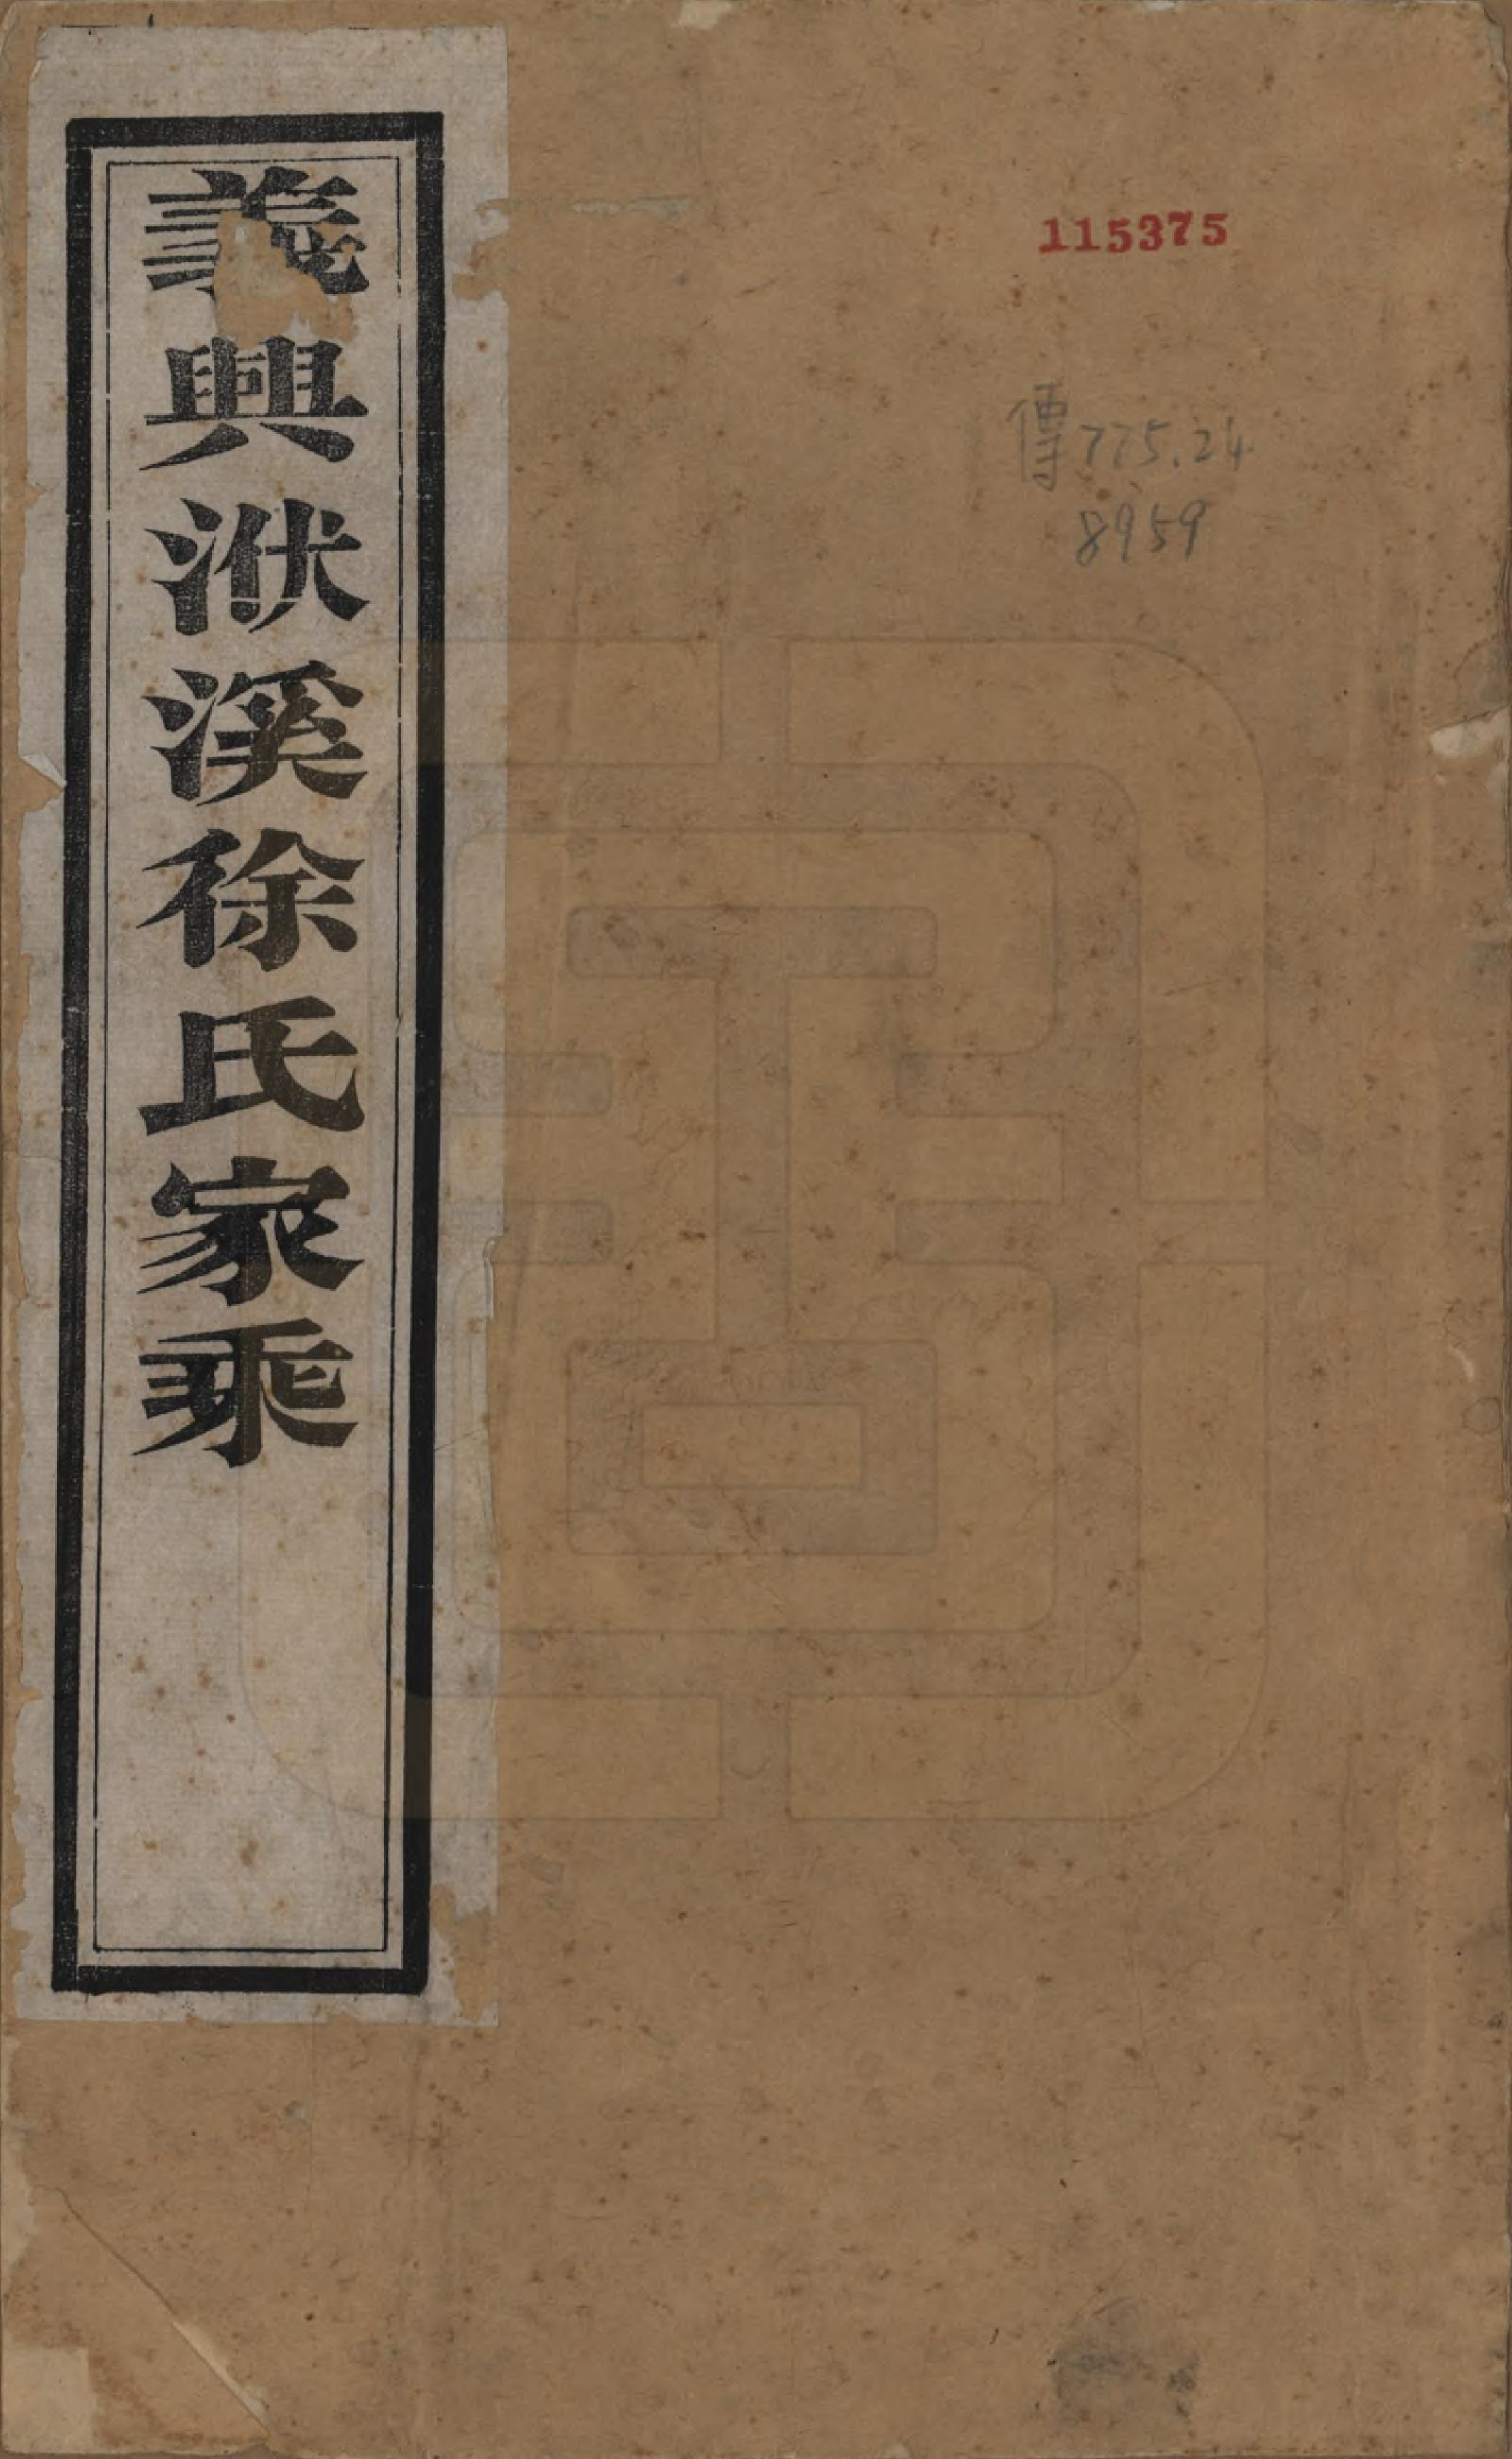 義興洑溪徐氏家乘
115375
傳 775.24
8959